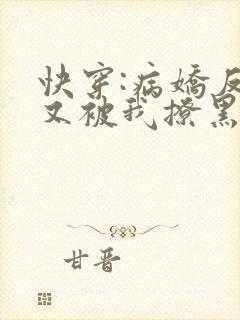 快穿:病娇反
又被我撩黑
甘晋